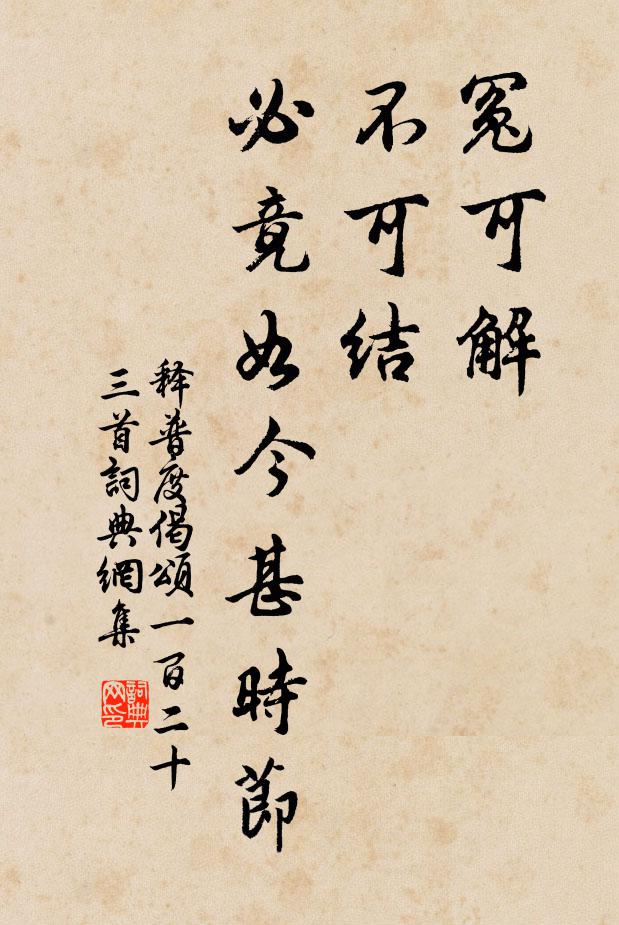 冤可解
不可結
必竟如今甚時節
释普度偈頌一百二十
三首詞典網集
詞典网印